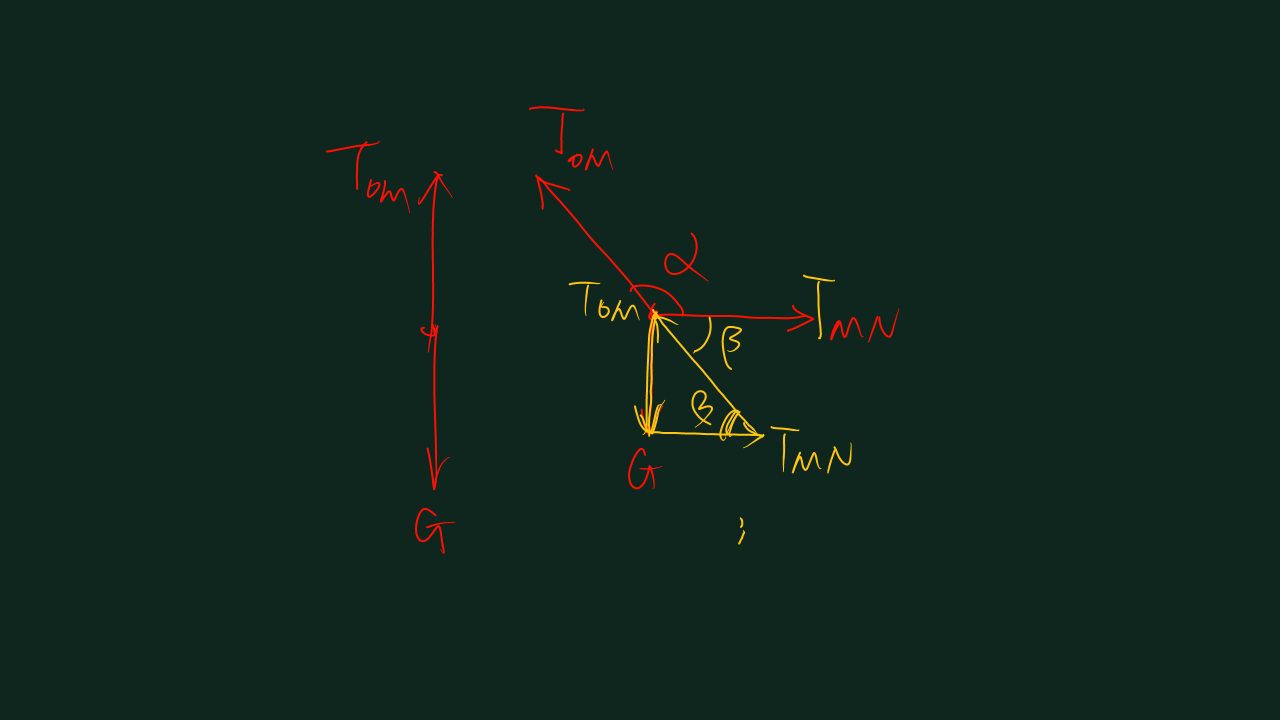 T_OM
T_OM
α
T_OM
T_MN
β
β
T_MN
G
G
;